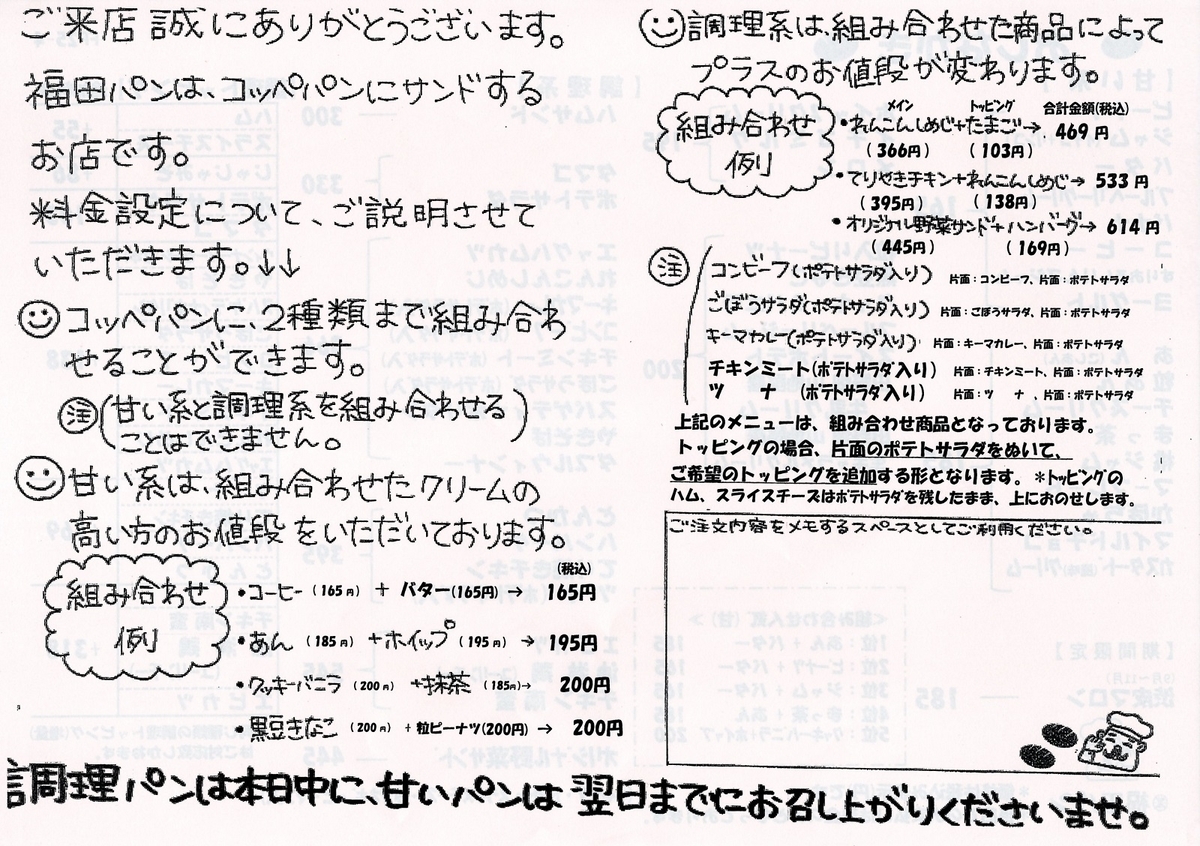 ご来店誠にありがとうございます。
福田パンは、コッペパンにサンドする
お店です。
料金設定について、ご説明させて
いただきます。↓↓
コッペパンに、2種類まで組み合わ
せることができます。
注(甘い系と調理系を組み合わせる
ことはできません。)
甘い系は、組み合わせたクリームの
高い方のお値段をいただいております。
組み合わせ
例
(税込)
・コーヒー(165円) + バター(165円) → 165円
・あん(185円) +ホイップ(195円) → 195円
・クッキーバニラ(200円) +抹茶(185円)→ 200円
・黒豆きなこ(200円) +粒ピーナツ(200円) → 200円
調理系は、組み合わせた商品によって
プラスのお値段が変わります。
組み合わせ
例
メイン トッピング 合計金額(税込)
・れんこんしめじ+たまご→ 469円
(366円) (103円)
・てりやきチキン+れんこんしめじ→ 533円
(395円) (138円)
・オリジナル野菜サンド+ハンバーグ→ 614円
(445円) (169円)
注
コンビーフ(ポテトサラダ入り) 片面:コンビーフ、片面:ポテトサラダ
ごぼうサラダ(ポテトサラダ入り) 片面:ごぼうサラダ、片面:ポテトサラダ
キーマカレー(ポテトサラダ入り) 片面:キーマカレー、片面:ポテトサラダ
チキンミート(ポテトサラダ入り) 片面:チキンミート、片面:ポテトサラダ
ツ ナ (ポテトサラダ入り) 片面:ツ ナ 、片面:ポテトサラダ
上記のメニューは、組み合わせ商品となっております。
トッピングの場合、片面のポテトサラダをぬいて、
ご希望のトッピングを追加する形となります。*トッピングの
ハム、スライスチーズはポテトサラダを残したまま、上におのせします。
ご注文内容をメモするスペースとしてご利用ください。
調理パンは本日中に、甘いパンは翌日までにお召し上がりくださいませ。